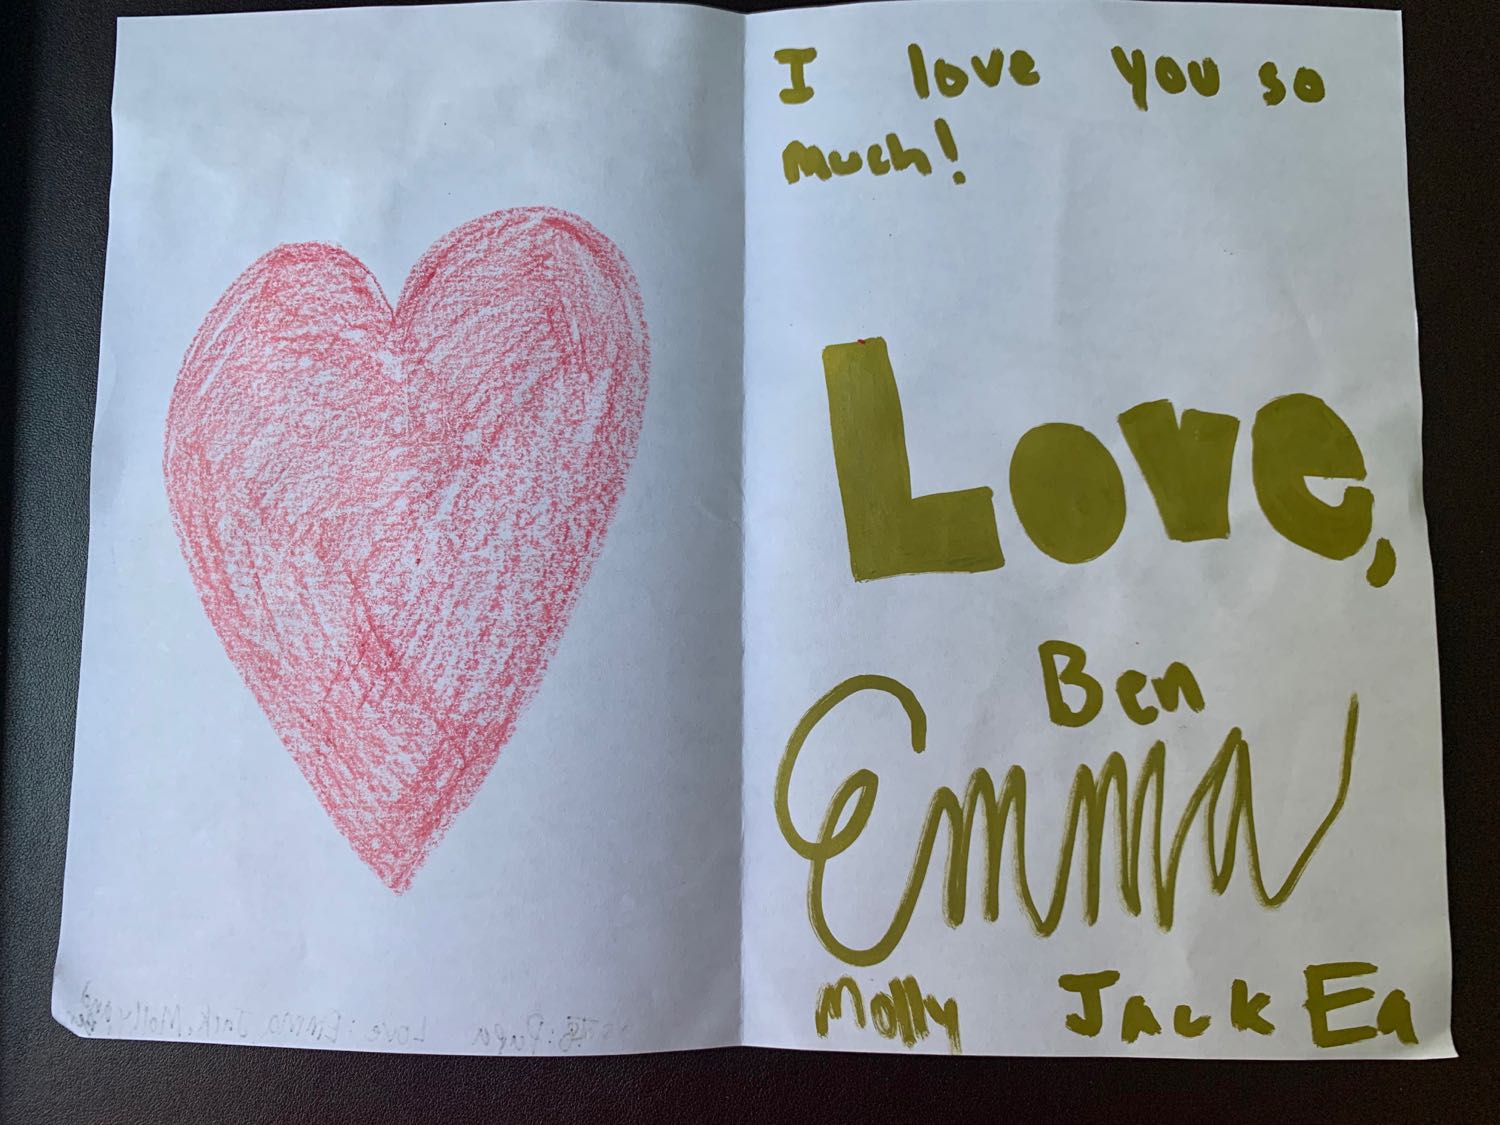 I love you so
much!
Love,
Ben
Emma
Molly Jack Ea
Papa Love: Emma Jack, Molly and
Ben